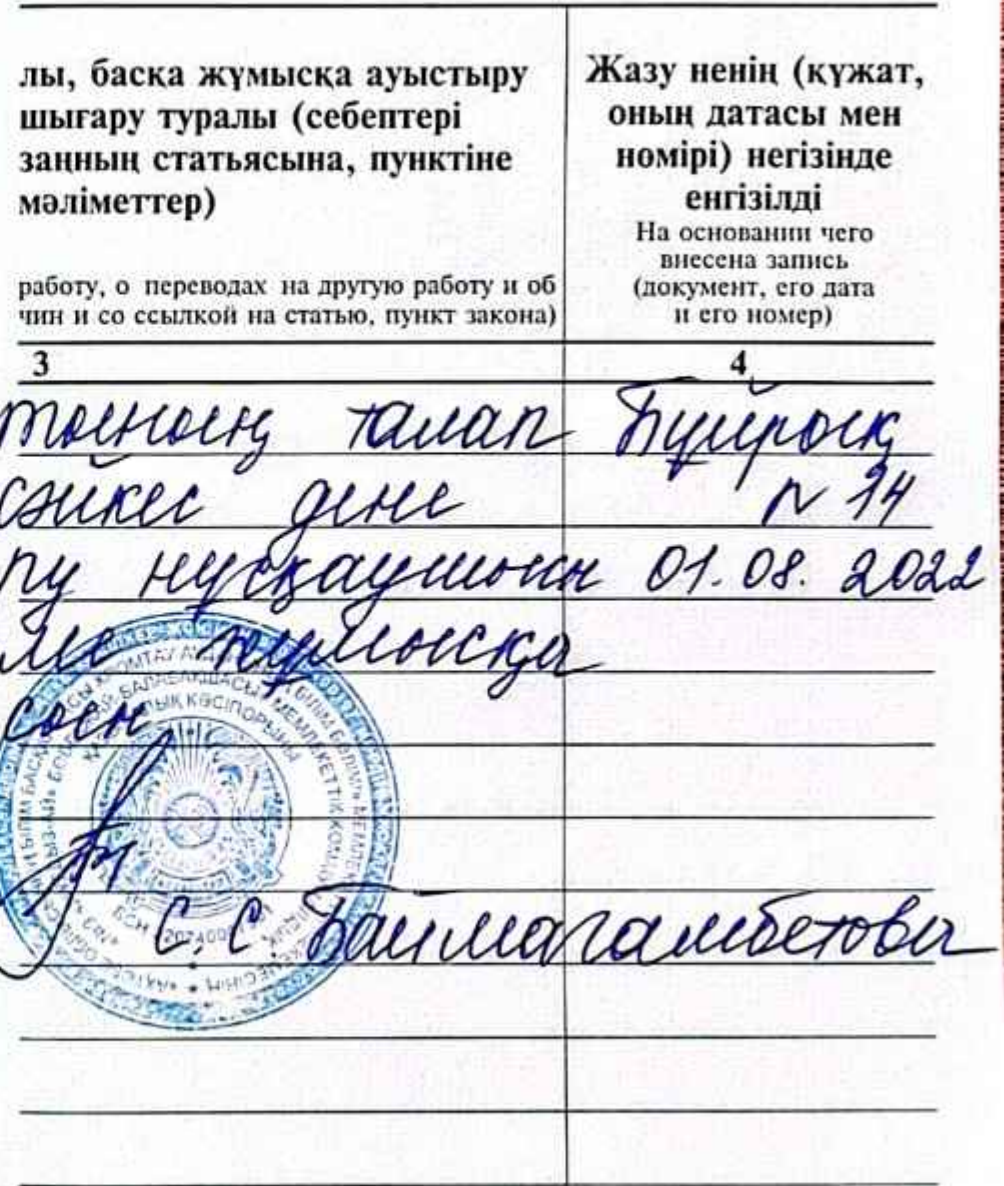 лы, басқа жұмысқа ауыстыру
шығару туралы (себептері
заңның статьясына, пунктіне
мәліметтер)
работу, о переводах на другую работу и об
чин и со ссылкой на статью, пункт закона)
Жазу ненің (құжат,
оның датасы мен
нөмірі) негізінде
енгізілді
На основании чего
внесена запись
(документ, его дата
и его номер)
3 4
тының талап Бұйрық
сәйкес дене № 14
ру нұсқаушысы 01.08.2022
жұмысқа
С.С. Баймагамбетова